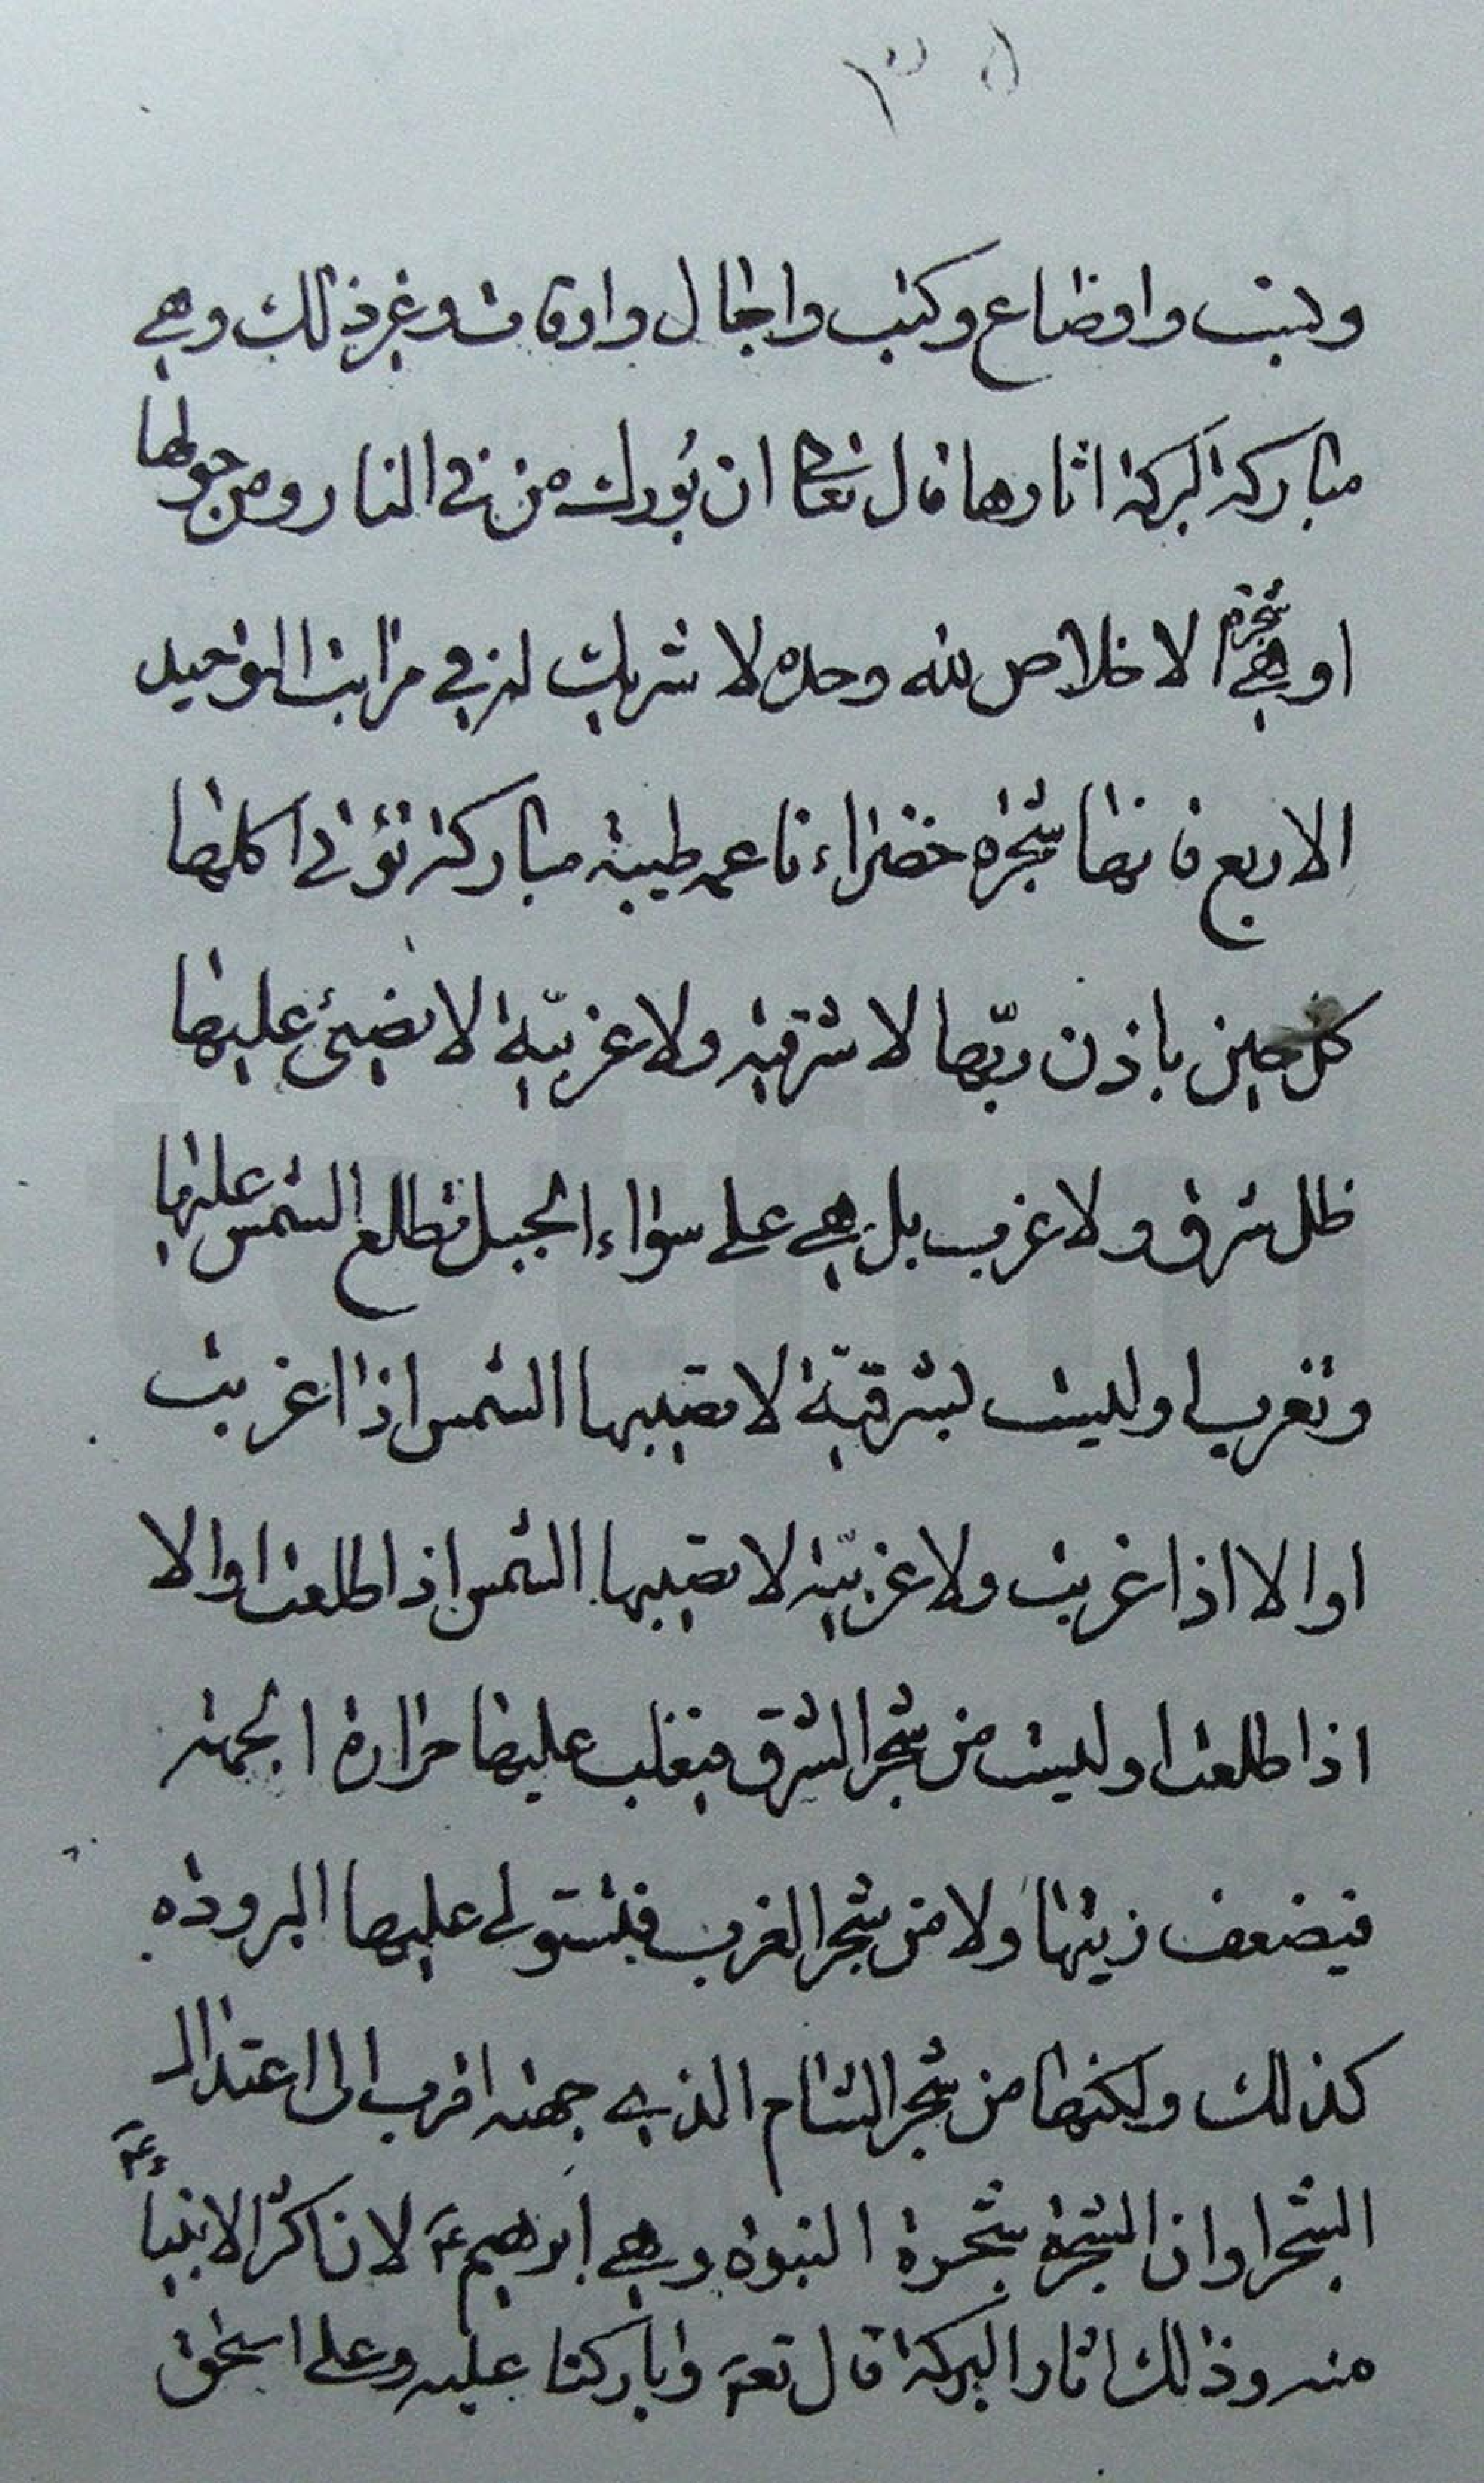 ٣٥
ونسب واوضاع وكتب واجال واوقات وغير ذلك وهي
مباركة لبركة اثارها قال تعالى ان بُورك من في النار ومن حولها
او هي شجرة الاخلاص لله وحده لا شريك له في مراتب التوحيد
الاربع فانها شجرة خضراء ناعمه طيبة مباركة تؤتى اكلها
كل حين باذن ربّها لا شرقية ولا غربيّة لا يضيئ عليها
ظل شرق ولا غرب بل هي على سواء الجبل تطلع الشمس عليها
وتغرب او ليست بشرقيّة لا تصيبها الشمس اذا اغربت
او الا اذا غربت ولا غربيّة لا تصيبها الشمس اذا طلعت او الا
اذا طلعت او ليست من شجر الشرق فتغلب عليها حرارة الجهة
فيضعف زيتها ولا من شجر الغرب فتستولى عليها البرودة
كذلك ولكنها من شجر الشام الذي جهته اقرب الى اعتدال
الشجر او ان الشجرة شجرة النبوة وهي ابرهيم ع لان اكثر الانبيا ء ع
منه وذلك اثار البركة قال تع وباركنا عليه وعلى اسحق